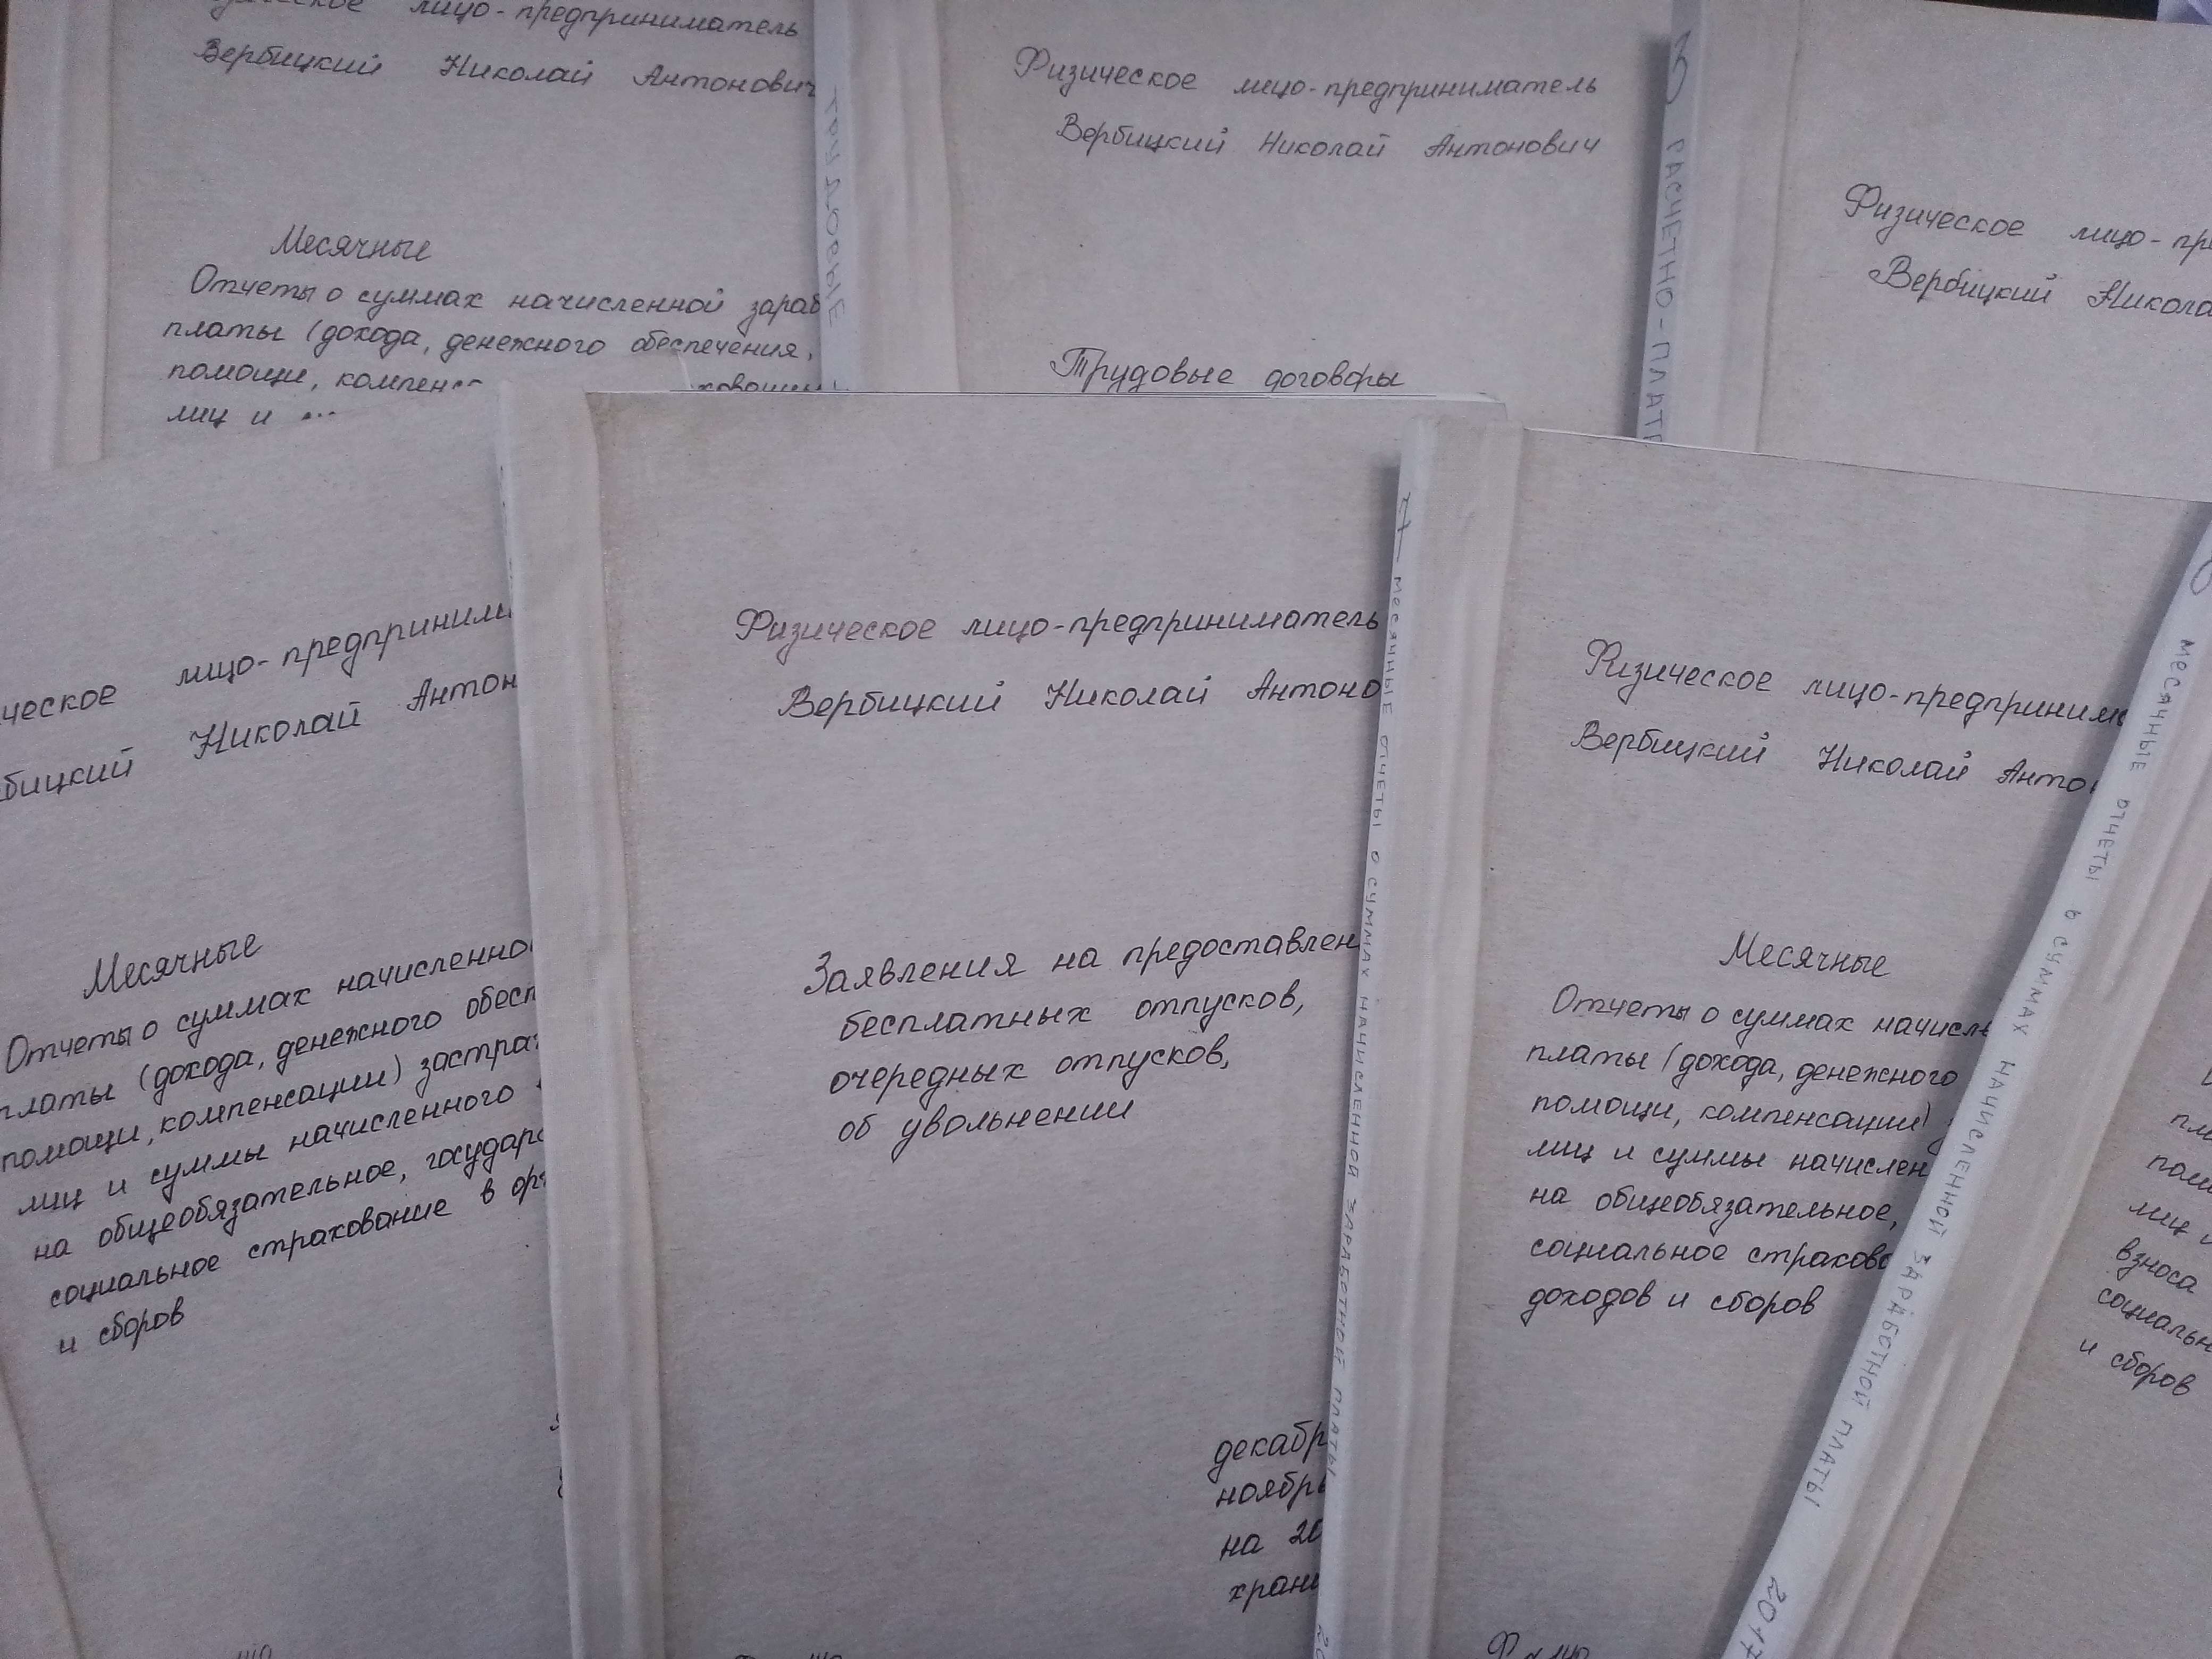 лицо-предприниматель
Вербицкий Николай Антонович
Месячные
Отчеты о суммах начисленной зараб
платы (дохода, денежного обеспечения,
помощи, компенс
лиц и
Физическое лицо-предприниматель
Вербицкий Николай Антонович
Трудовые договоры
5 РАСЧЕТНО-ПЛАТЕ
Физическое лицо-пр
Вербицкий Никола
ческое лицо-предприним
бицкий Николай Антон
Месячные
Отчеты о суммах начисленно
платы (дохода, денежного обесп
помощи, компенсации) застра
лиц и суммы начисленного
на общеобязательное, государс
социальное страхование в орг
и сборов
Физическое лицо-предприниматель
Вербицкий Николай Антоно
Заявления на предоставлен
бесплатных отпусков,
очередных отпусков,
об увольнении
декабр
ноябрь
на 20
хран
7 МЕСЯЧНЫЕ ОТЧЕТЫ О СУММАХ НАЧИСЛЕННОЙ ЗАРАБОТНОЙ ПЛАТЫ
Физическое лицо-предприним
Вербицкий Николай Анто
Месячные
Отчеты о суммах начисле
платы (дохода, денежного
помощи, компенсации)
лиц и суммы начислен
на общеобязательное,
социальное страхова
доходов и сборов
МЕСЯЧНЫЕ ОТЧЕТЫ О СУММАХ НАЧИСЛЕННОЙ ЗАРАБОТНОЙ ПЛАТЫ 2017
пла
пом
лиц и
взноса
социальн
и сборов